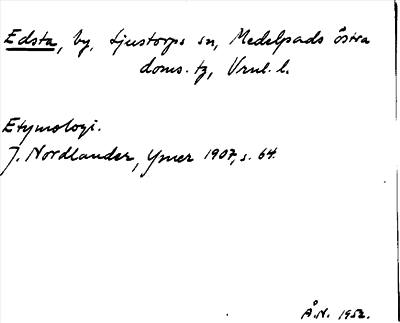 Edsta, by, Ljustorps sn, Medelpads östra
doms. tg, Vrnl. l.
Etymologi.
J. Nordlander, Ymer 1907, s. 64.
Å.N. 1952.